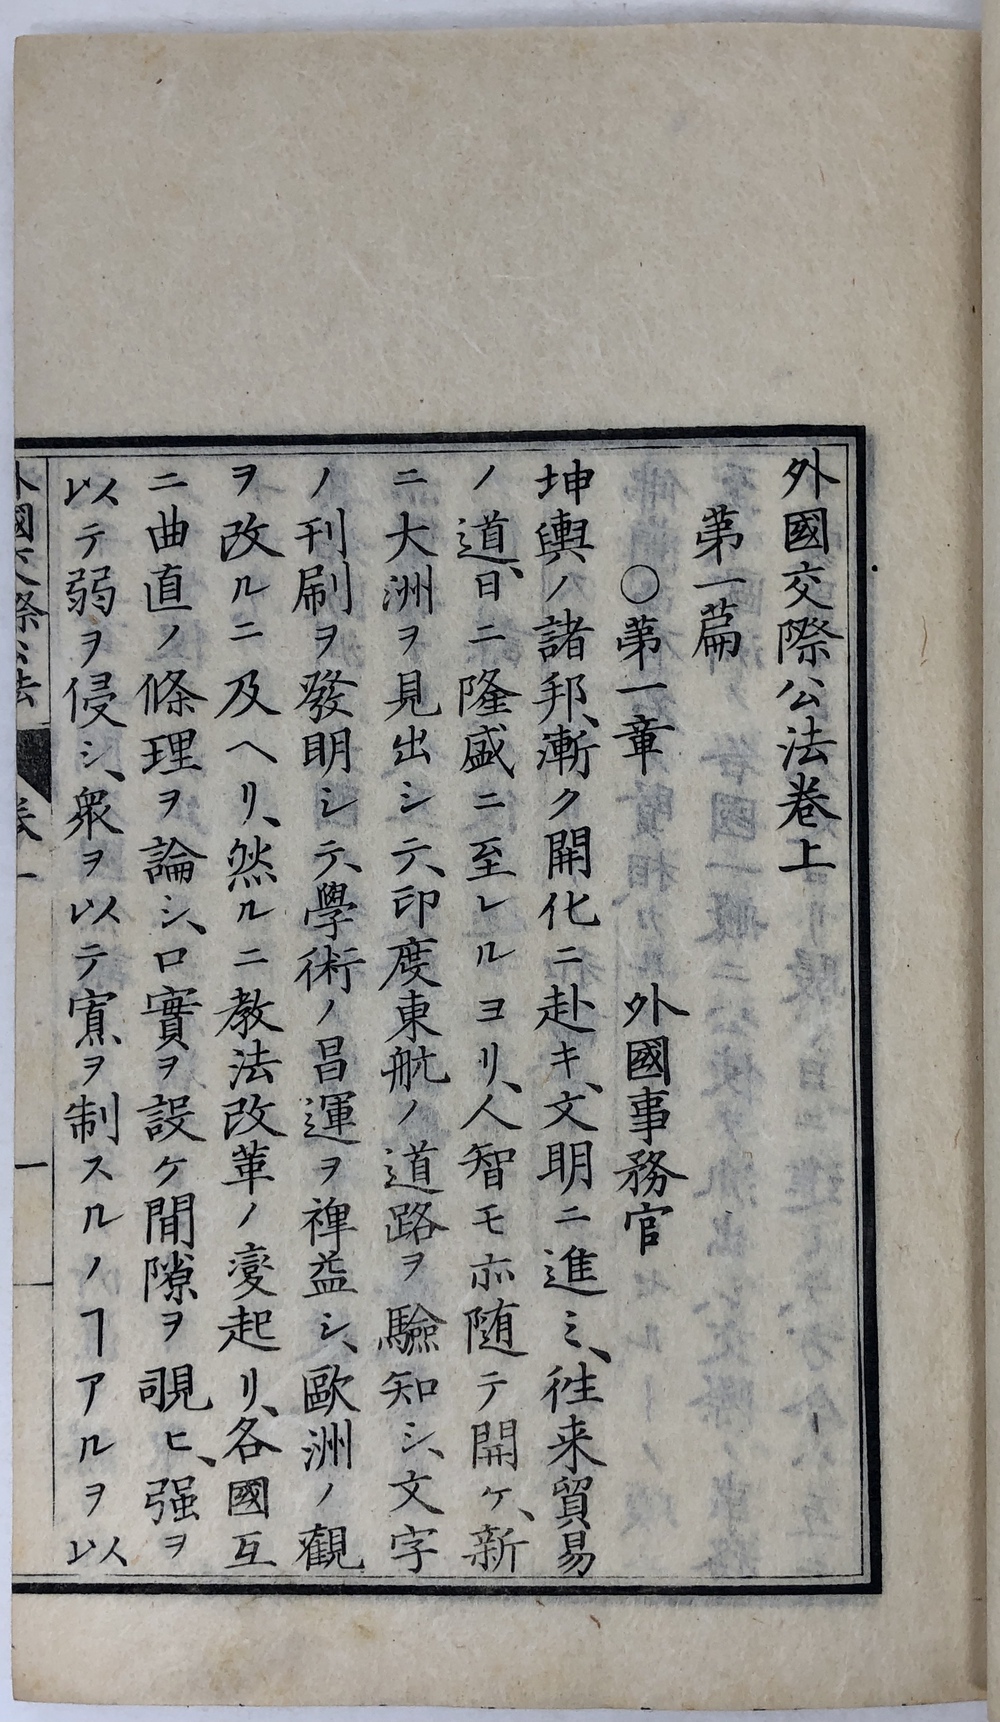 外國交際公法卷上
第一篇
〇第一章　外國事務官
坤輿ノ諸邦、漸ク開化ニ赴キ、文明ニ進ミ、徃来貿易
ノ道、日ニ隆盛ニ至レルヨリ、人智モ亦随テ開ケ、新
ニ大洲ヲ見出シテ、印度東航ノ道路ヲ驗知シ、文字
ノ刊刷ヲ發明シテ、學術ノ昌運ヲ裨益シ、歐洲ノ觀
ヲ改ルニ及ヘリ、然ルニ教法改革ノ變起リ、各國互
ニ曲直ノ條理ヲ論シ、口實ヲ設ケ間隙ヲ覗ヒ、强ヲ
以テ弱ヲ侵シ、衆ヲ以テ寡ヲ制スルノヿアルヲ以
外國交際公法　卷一　一